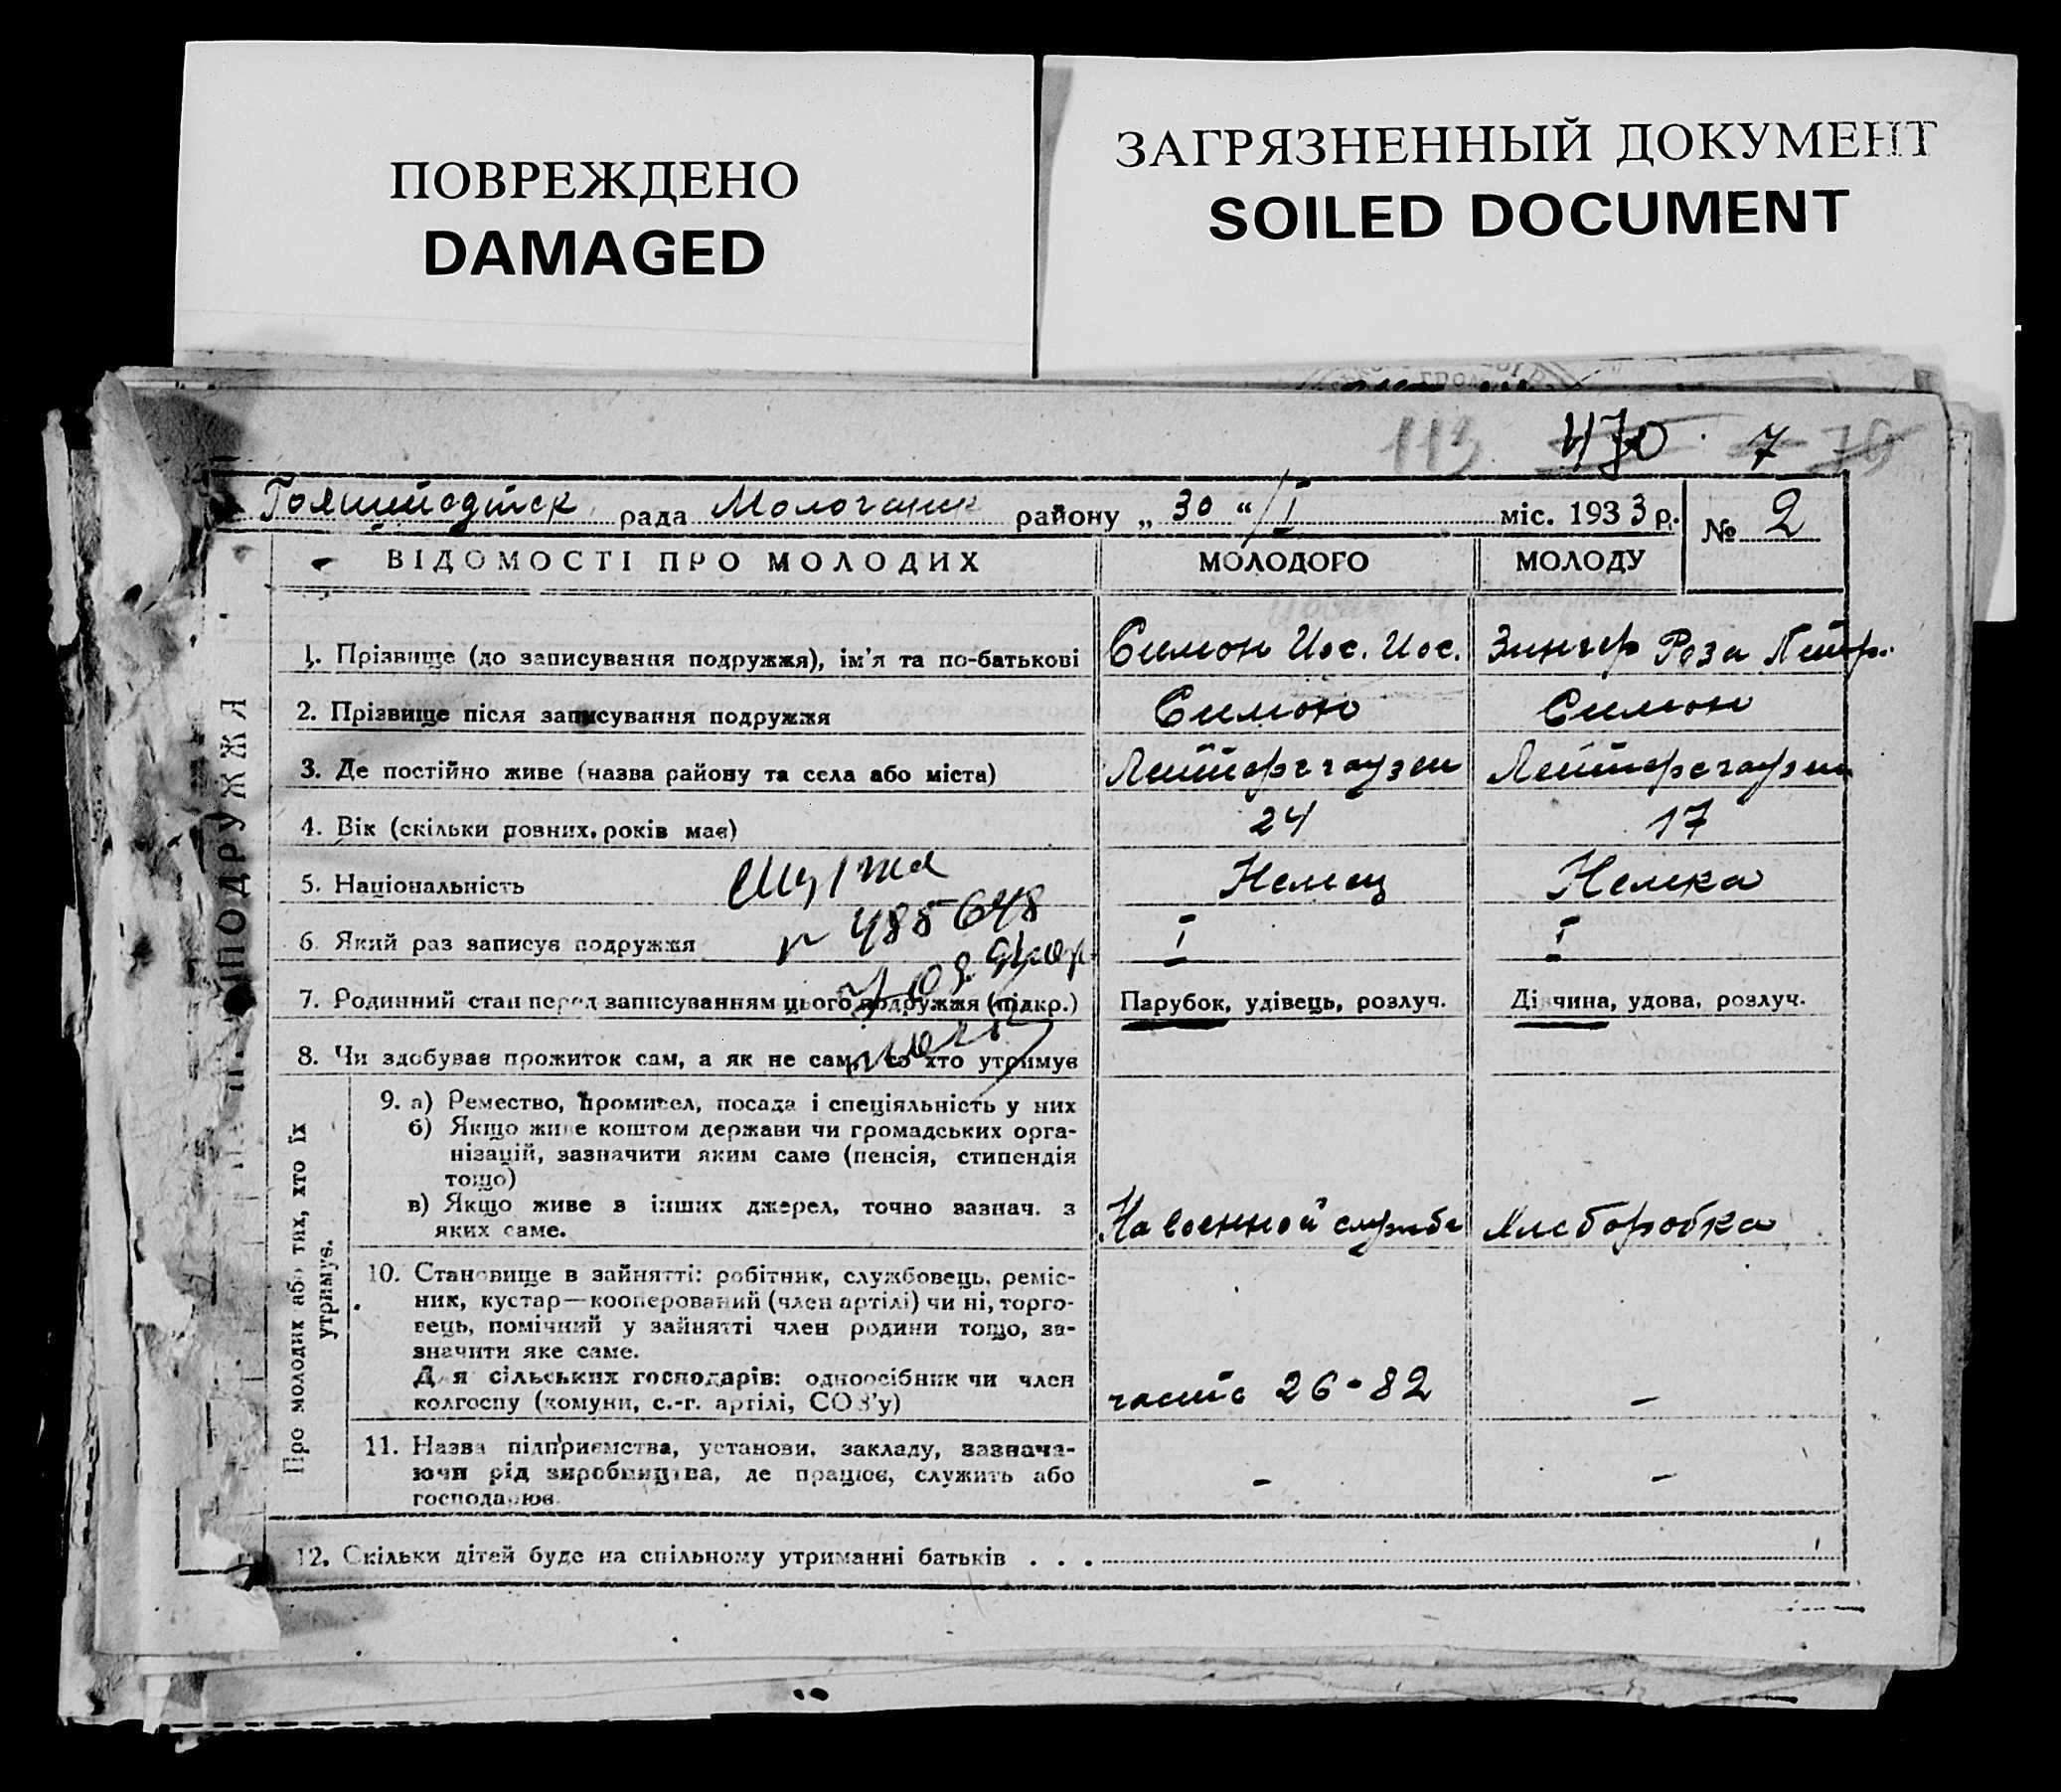 ПОВРЕЖДЕНО
DAMAGED
ЗАГРЯЗНЕННЫЙ ДОКУМЕНТ
SOILED DOCUMENT
113 470 7 70
рада Молочанск району „ 30 “ / I міс. 1933 р. № 2
ВІДОМОСТІ ПРО МОЛОДИХ МОЛОДОГО МОЛОДУ
ПОДРУЖЖЯ
1. Прізвище (до записування подружжя), ім’я та по-батькові Симон Иос. Иос. Зингер Роза Петр.
2. Прізвище після записування подружжя Симон Симон
3. Де постійно живе (назва району та села або міста) Лейтерсгаузен Лейтерсгаузен
4. Вік (скільки повних років має) 24 17
5. Національність Немец Немка
6. Який раз записує подружжя I I
№ 485648
7. Родинний стан перед записуванням цього подружжя (підкр.) Парубок, удівець, розлуч. Дівчина, удова, розлуч.
8. Чи здобував прожиток сам, а як не сам, то хто утримує
Про молодих або тих, хто їх утримує.
9. а) Ремество, промисел, посада і спеціяльність у них
б) Якщо живе коштом держави чи громадських орга-
нізацій, зазначити яким саме (пенсія, стипендія
тощо)
в) Якщо живе в інших джерел, точно вазнач. з
яких саме. На военной службе Хлеборобка
10. Становище в зайнятті: робітник, службовець, реміс-
ник, кустар—кооперований (член артілі) чи ні, торго-
вець, помічний у зайнятті член родини тощо, за-
значити яке саме.
Для сільських господарів: одноосібник чи член
колгоспу (комуни, с.-г. артілі, СОЗ’у) часть 26-82 –
11. Назва підприємства, установи, закладу, зазнача-
ючи рід виробництва, де працює, служить або
господарює. – –
12. Скільки дітей буде на спільному утриманні батьків . . .